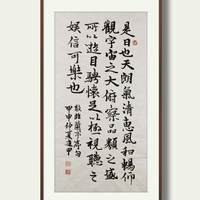 是日也天朗氣清惠風和暢仰
觀宇宙之大俯察品類之盛
所以遊目騁懷足以極視聽之
娛信可樂也
蘭亭序句
甲申仲夏